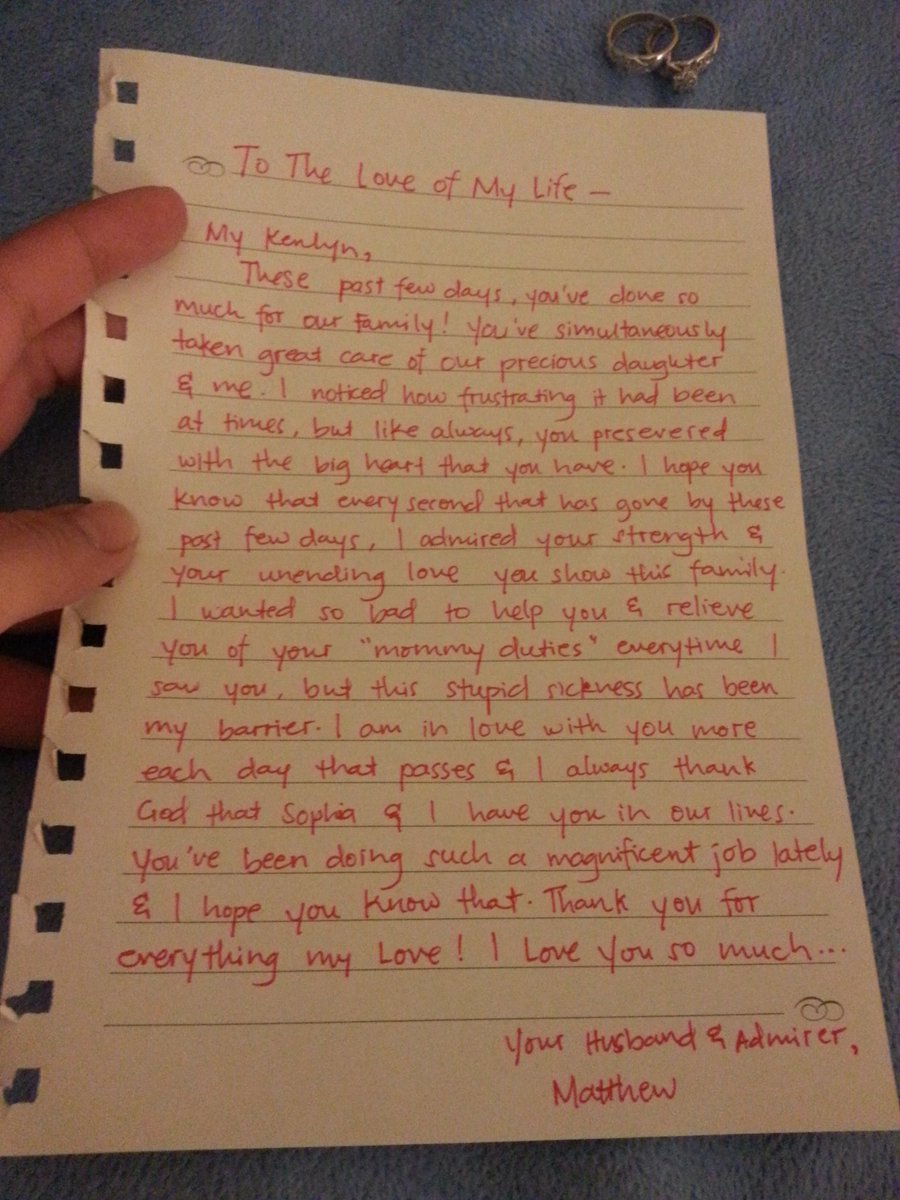 To The Love of My Life —
My Kenlyn,
These past few days, you've done so
much for our family! You've simultaneously
taken great care of our precious daughter
& me. I noticed how frustrating it had been
at times, but like always, you presevered
with the big heart that you have. I hope you
know that every second that has gone by these
past few days, I admired your strength &
your unending love you show this family.
I wanted so bad to help you & relieve
you of your "mommy duties" everytime I
saw you, but this stupid sickness has been
my barrier. I am in love with you more
each day that passes & I always thank
God that Sophia & I have you in our lives.
You've been doing such a magnificent job lately
& I hope you know that. Thank you for
everything my Love! I Love You so much...
Your Husband & Admirer,
Matthew